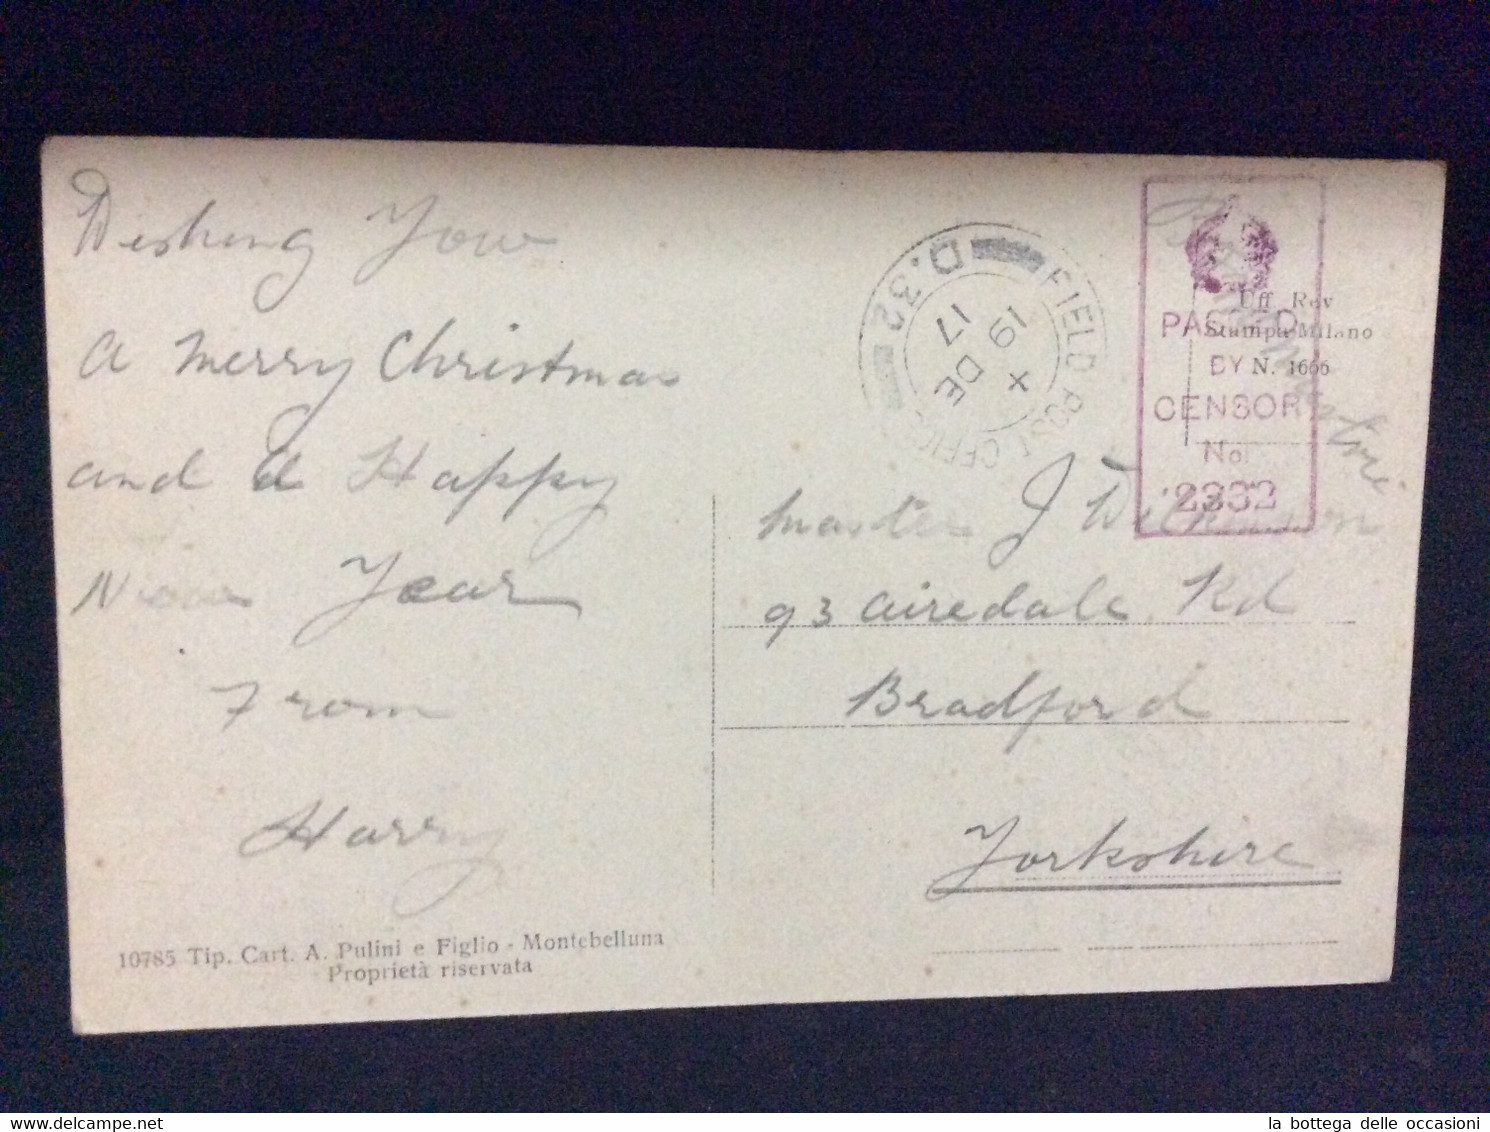 Wishing You
a Merry Christmas
and a Happy
New Year
From
Harry
10785 Tip. Cart. A. Pulini e Figlio - Montebelluna
Proprietà riservata
FIELD POST OFFICE
D.32
X
19 DE
17
PASSED
BY
CENSOR
No.
2332
Uff. Rev
Stampa Milano
N. 1666
Master J Wilkinson
93 Airedale Rd
Bradford
Yorkshire
la bottega delle occasioni